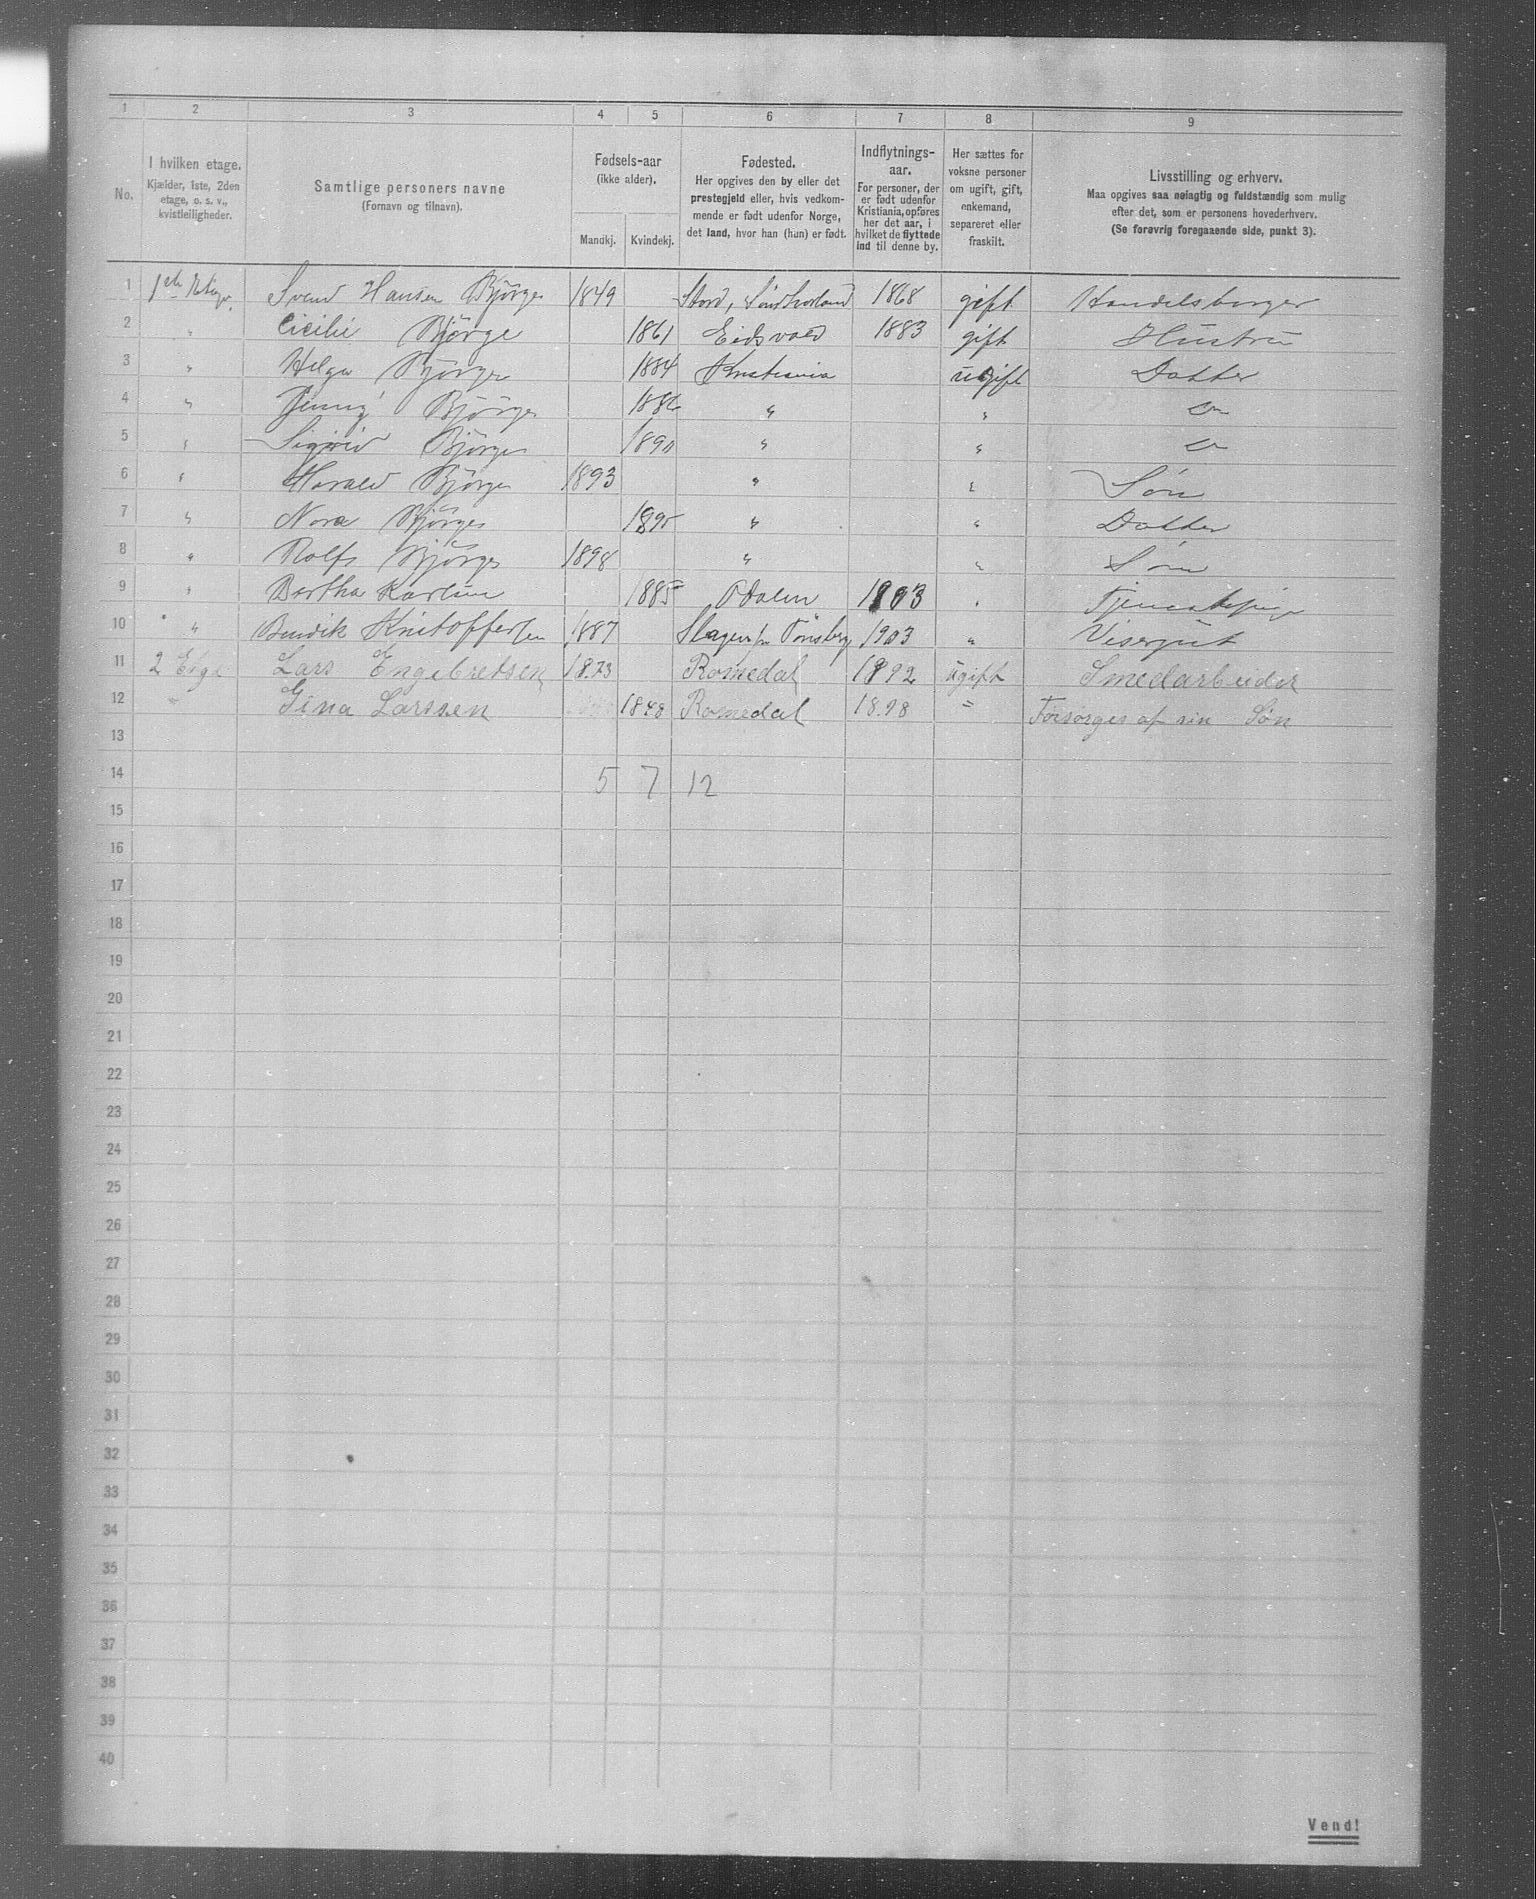 1 2 3 4 5 6 7 8 9
No.
I hvilken etage.
Kjælder, 1ste, 2den
etage, o. s. v.,
kvistleiligheder.
Samtlige personers navne
(Fornavn og tilnavn).
Fødsels-aar
(ikke alder).
Mandkj. Kvindekj.
Fødested.
Her opgives den by eller det
prestegjeld eller, hvis vedkom-
mende er født udenfor Norge,
det land, hvor han (hun) er født.
Indflytnings-
aar.
For personer, der
er født udenfor
Kristiania, opføres
her det aar, i
hvilket de flyttede
ind til denne by.
Her sættes for
voksne personer
om ugift, gift,
enkemand,
separeret eller
fraskilt.
Livsstilling og erhverv.
Maa opgives saa nøiagtig og fuldstændig som mulig
efter det, som er personens hovederhverv.
(Se forøvrig foregaaende side, punkt 3).
1 1ste Etage Svend Hansen Bjørge 1849 Stord, Søndhorland 1868 gift Handelsborger
2 " Cicilie Bjørge 1861 Eidsvold 1883 gift Hustru
3 " Helga Bjørge 1884 Kristiania ugift Datter
4 " Jenny Bjørge 1886 " "
5 " Sigrid Bjørge 1890 " "
6 " Harald Bjørge 1893 " " Søn
7 " Nora Bjørge 1895 " " Datter
8 " Rolf Bjørge 1898 " " Søn
9 " Bertha Karlsen 1885 Odalen 1903 " Tjenestepige
10 " Bendik Kristoffersen 1887 Slagen pr Tønsberg 1903 " Visergut
11 2 Etge Lars Engebretsen 1873 Romedal 1892 ugift Smedarbeider
12 " Gina Larssen 1848 Romedal 1898 " Forsørges af sin Søn
13
14 5 7 12
15
16
17
18
19
20
21
22
23
24
25
26
27
28
29
30
31
32
33
34
35
36
37
38
39
40
Vend!